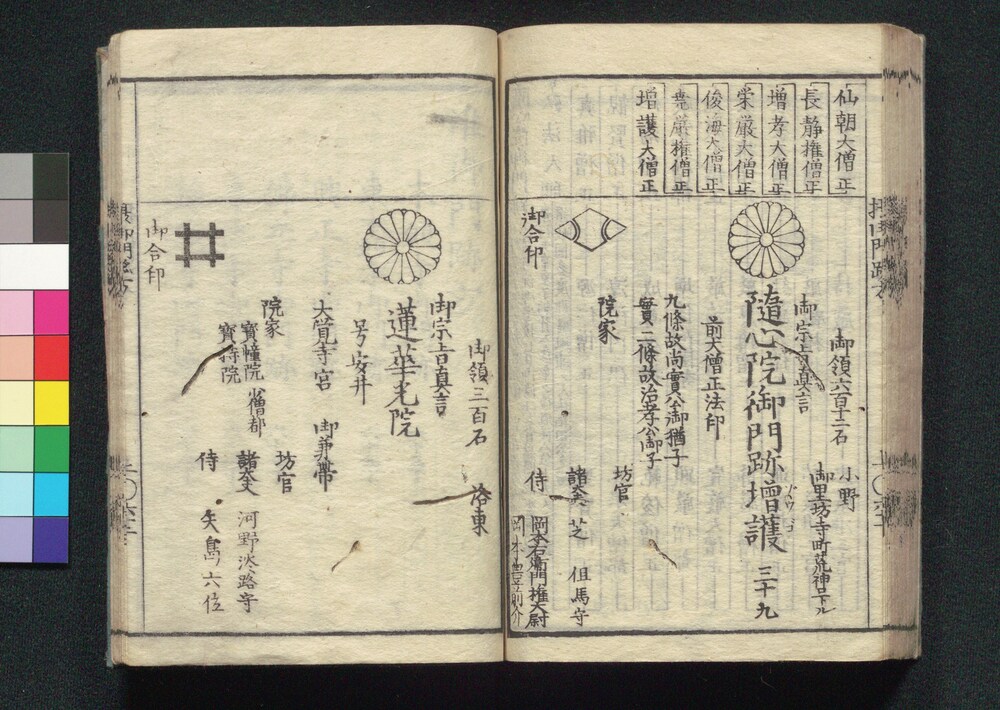 仙朝大僧正
長静権僧正
増孝大僧正
栄厳大僧正
俊海大僧正
尭厳権僧正
増護大僧正
御領六百十二石
小野
御里坊寺町荒神口下ル
御宗旨真言
隨心院御門跡増護 三十九
前大僧正法印
九條故尚實公御猶子
實二條故治孝公御子
院家
坊官
諸大夫 芝 但馬守
侍 岡本右衛門権大尉
岡本豊前介
御合印
御領三百石
洛東
御宗旨真言
蓮華光院
号安井
大覚寺宮 御兼帯
院家
寶幢院 少僧都
寶持院
坊官
諸大夫 河野淡路守
侍 矢島六位
御合印